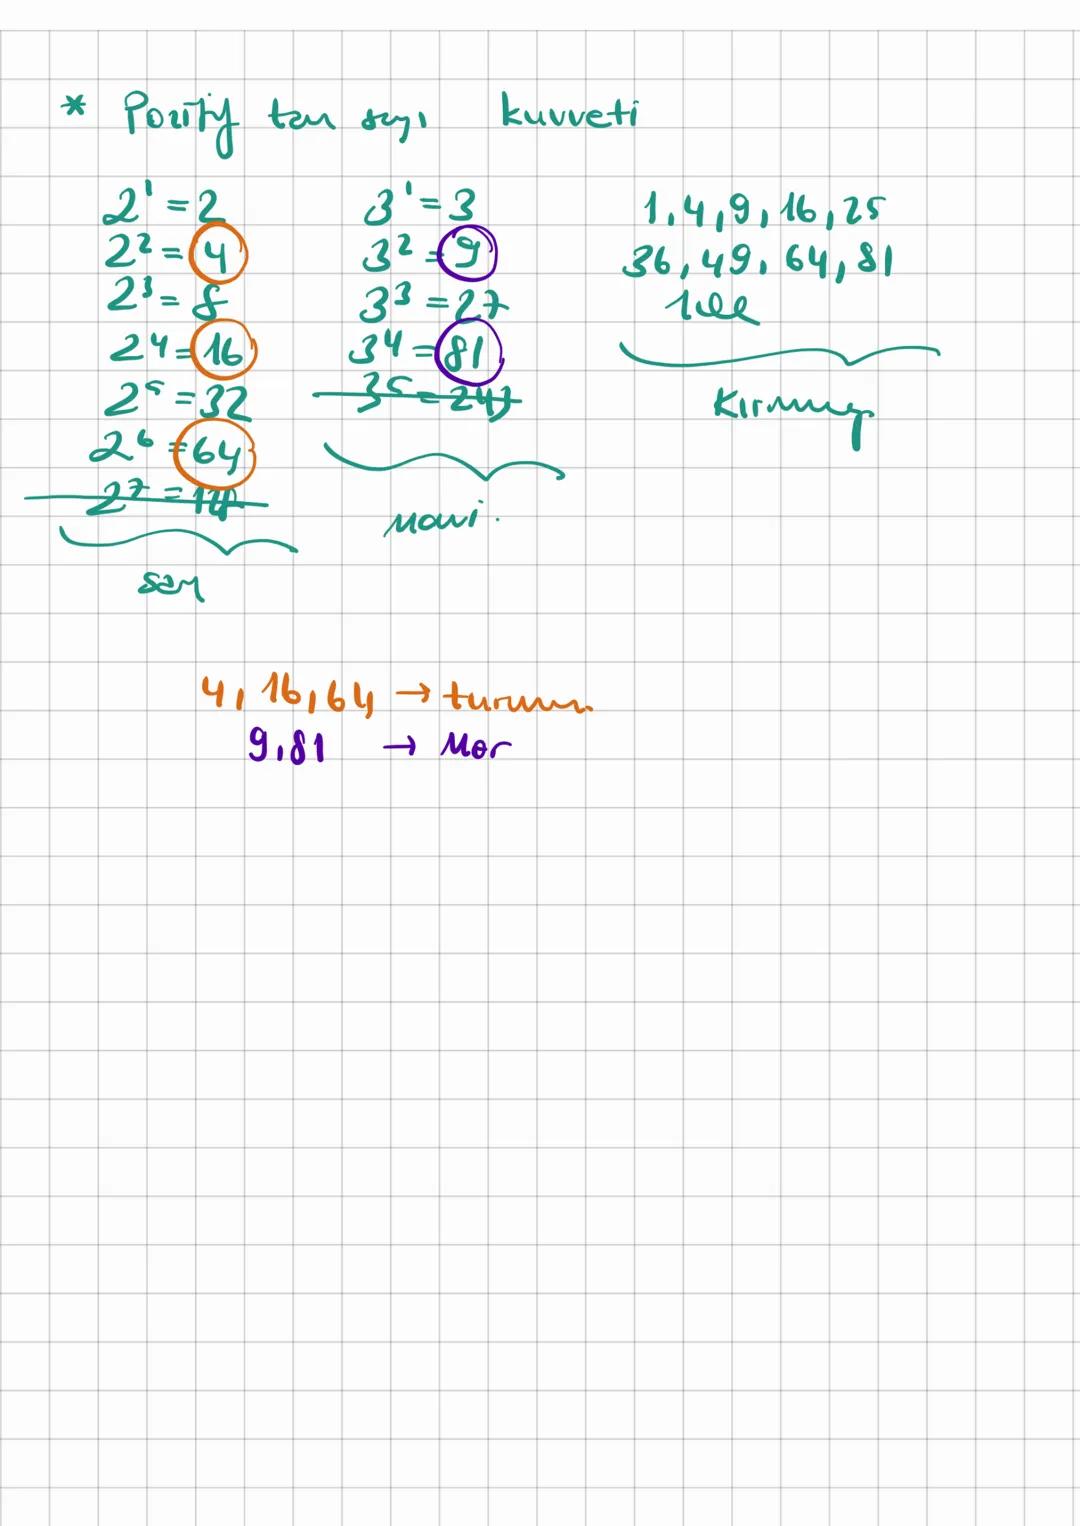 * Pozitif tam sayı kuvveti
2¹ = 2
2² = 4
2³ = 8
2⁴ = 16
2⁵ = 32
2⁶ = 64
2⁷ =
sarı
3¹ = 3
3² = 9
3³ = 27
3⁴ = 81
3⁵ = 243
Mavi.
1, 4, 9, 16, 25
36, 49, 64, 81
100
Kırmızı
4, 16, 64 → turuncu
9, 81 → Mor